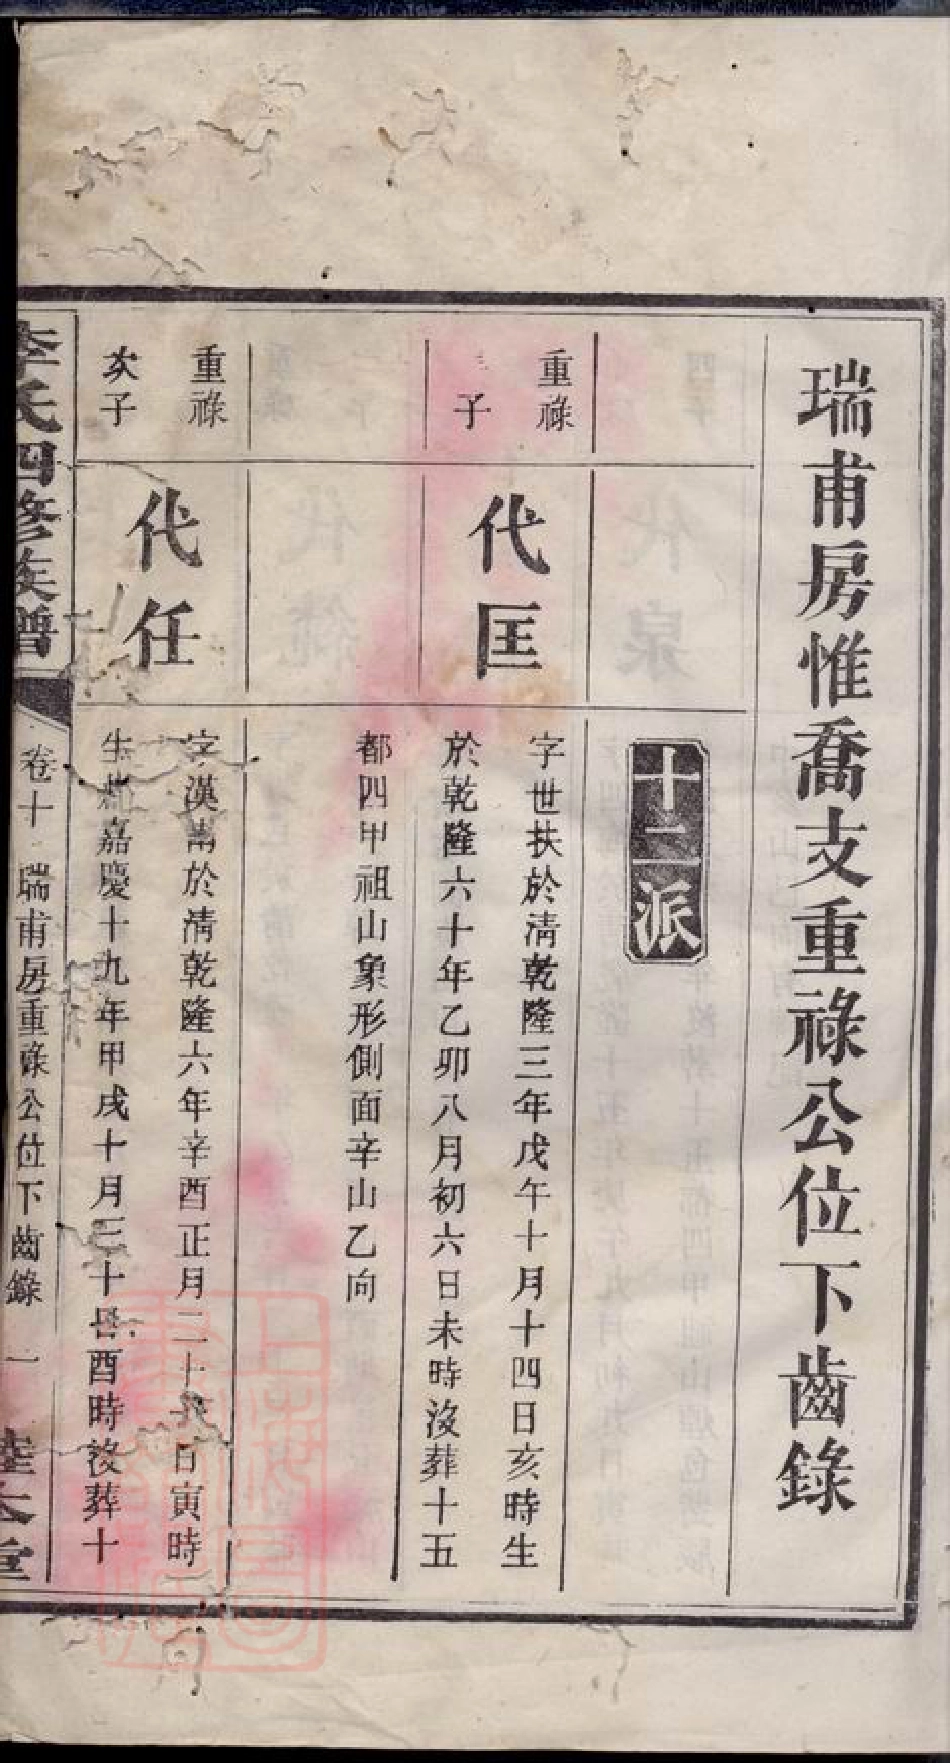 瑞甫房惟喬支重祿公位下齒錄
十二派
重祿
子
代匡
字世扶於清乾隆三年戊午十月十四日亥時生
於乾隆六十年乙卯八月初六日未時沒葬十五
都四甲祖山象形側面辛山乙向
重祿
次子
代任
字漢南於清乾隆六年辛酉正月二十日寅時
生嘉慶十九年甲戌十月三十日酉時沒葬十
李氏四修族譜
卷十
瑞甫房重祿公位下齒錄
一
堂